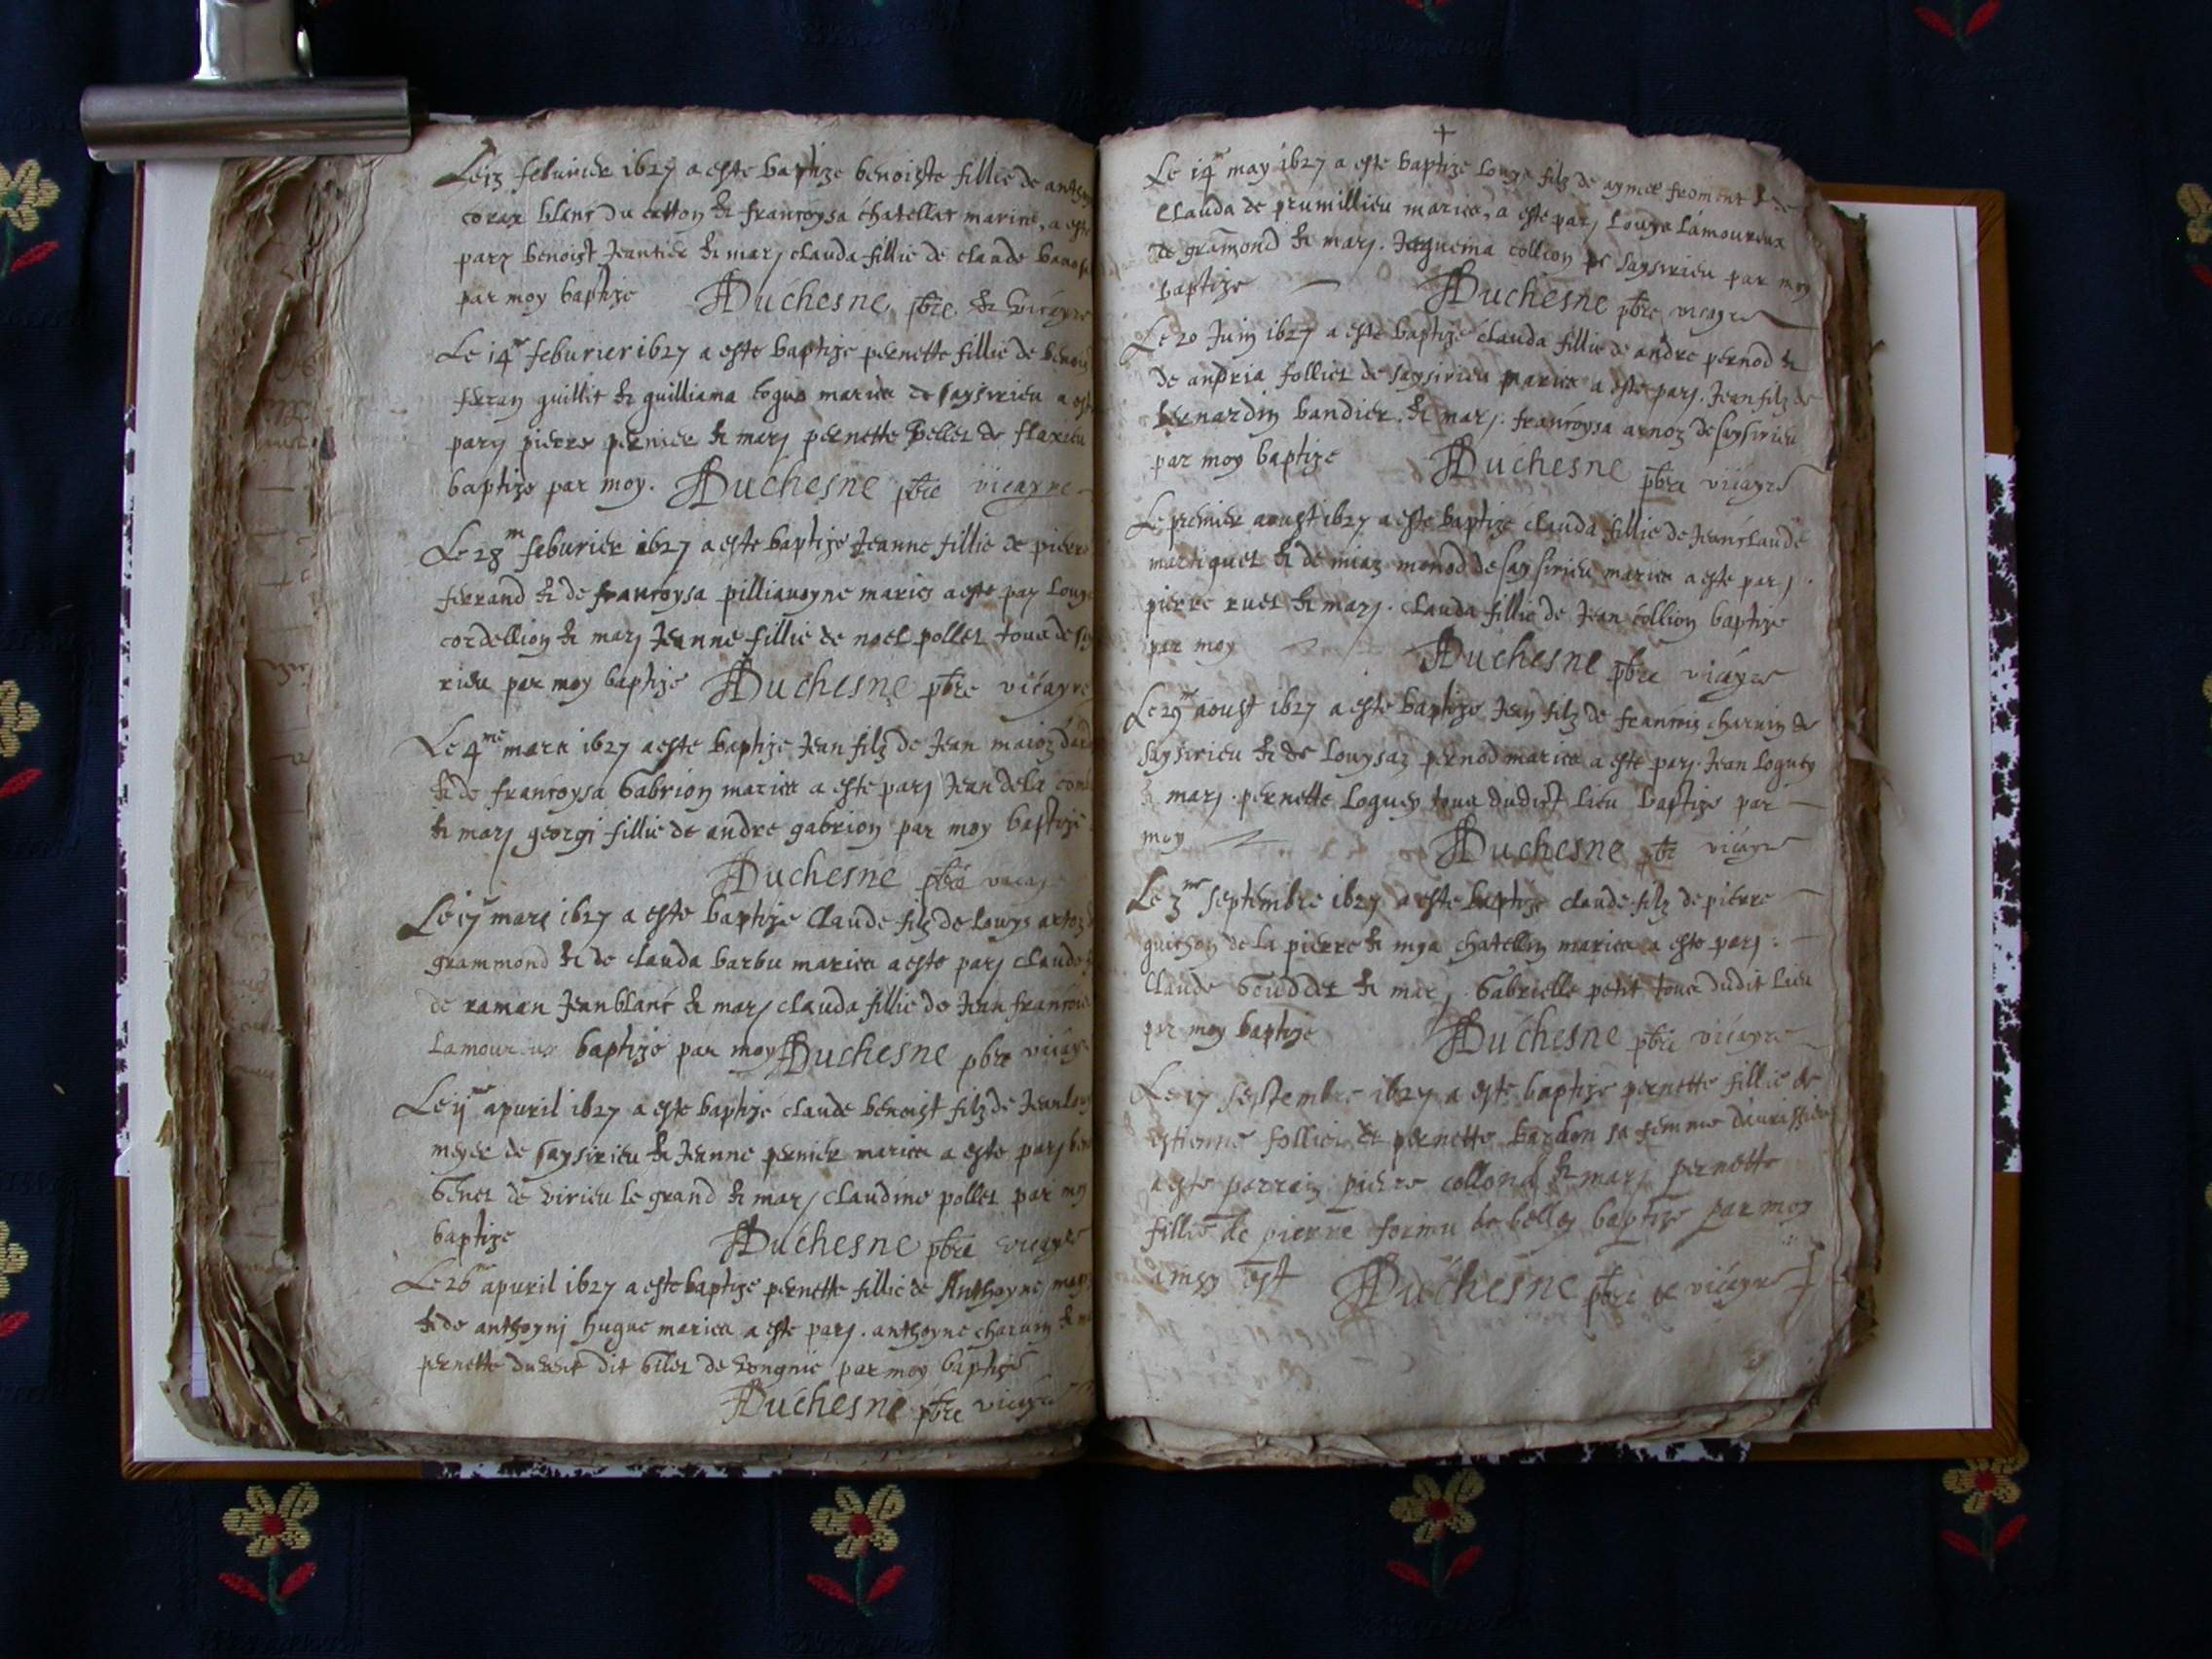 Le 13 feburier 1627 a este baptize benoiste fillie de
blanc du & francoysa chatellat maries, a este
parj benoist Jeantier & marj clauda fillie de claude
par moy baptize Duchesne, pbre & vicayre
Le 14 feburier 1627 a este baptize pernette fillie de
guillet & guilliama maries de saysirieu a
parj pierre pernier & marj pernette pellet de flaxieu
baptize par moy. Duchesne pbre vicayre
Le 28 feburier 1627 a este baptize Jeanne fillie de pierre
ferrand & de francoysa maries a este par Louys
cordellion & marj Jeanne fillie de noel pollet tous de
rieu par moy baptize Duchesne pbre vicayre
Le 4me mars 1627 a este baptize Jean filz de Jean
& de francoysa Gabrion maries a este parj Jean de la
& marj georgi fillie de andre gabrion par moy baptize
Duchesne pbre
Le 17 mars 1627 a este baptize Claude filz de Louys
grammond & de clauda barbu maries a este parj claude
de Jean blanc & marj clauda fillie de Jean francois
baptize par moy Duchesne pbre vicayre
Le apuril 1627 a este baptize claude benoist filz de
meyer de saysirieu & Jeanne pernier maries a este parj
Genet de virieu le grand & marj claudine pollet par moy
baptize Duchesne pbre vicayre
Le 26 apuril 1627 a este baptize pernette fillie de Anthoyne
& de anthoynj hugue maries a este parj. anthoyne charvin &
pernette dit de vongnie par moy baptize
Duchesne pbre vicayre
Le 14 may 1627 a este baptize Louys filz de aymee froment & de
Clauda de prumillieu maries, a este parj Louys Lamoureux
de gramond & marj. Jaquema collion de saysirieu par moy
baptize Duchesne pbre vicayre
Le 20 Juin 1627 a este baptize clauda fillie de andre pernod &
de andria folliet de saysirieu maries a este parj. Jean filz de
bernardin bandier & marj. francoysa arnoz de saysirieu
par moy baptize Duchesne pbre vicayre
Le premier aoust 1627 a este baptize clauda fillie de Jean claude
martiguet & de miaz monod de saysirieu maries a este parj.
pierre ruet & marj. clauda fillie de Jean collion baptize
par moy Duchesne pbre vicayre
Le 29me aoust 1627 a este baptize Jean filz de francois charvin de
saysirieu & de Louysaz pernod maries a este parj. Jean Loguey
& marj. pernette Loguey tous dudict lieu baptize par
moy Duchesne pbre vicayre
Le 3me septembre 1627 a este baptize claude filz de pierre
guichon de la pierre & mya chatellin maries a este parj.
Claude & marj. Gabrielle petit tous dudit lieu
par moy baptize Duchesne pbre vicayre
Le 17 septembre 1627 a este baptize pernette fillie de
estienne folliet et pernette bardon sa femme
a este parrain pierre collond & marj pernette
fillie de pierre de belley baptize par moy
ainsy est Duchesne pbre & vicayre